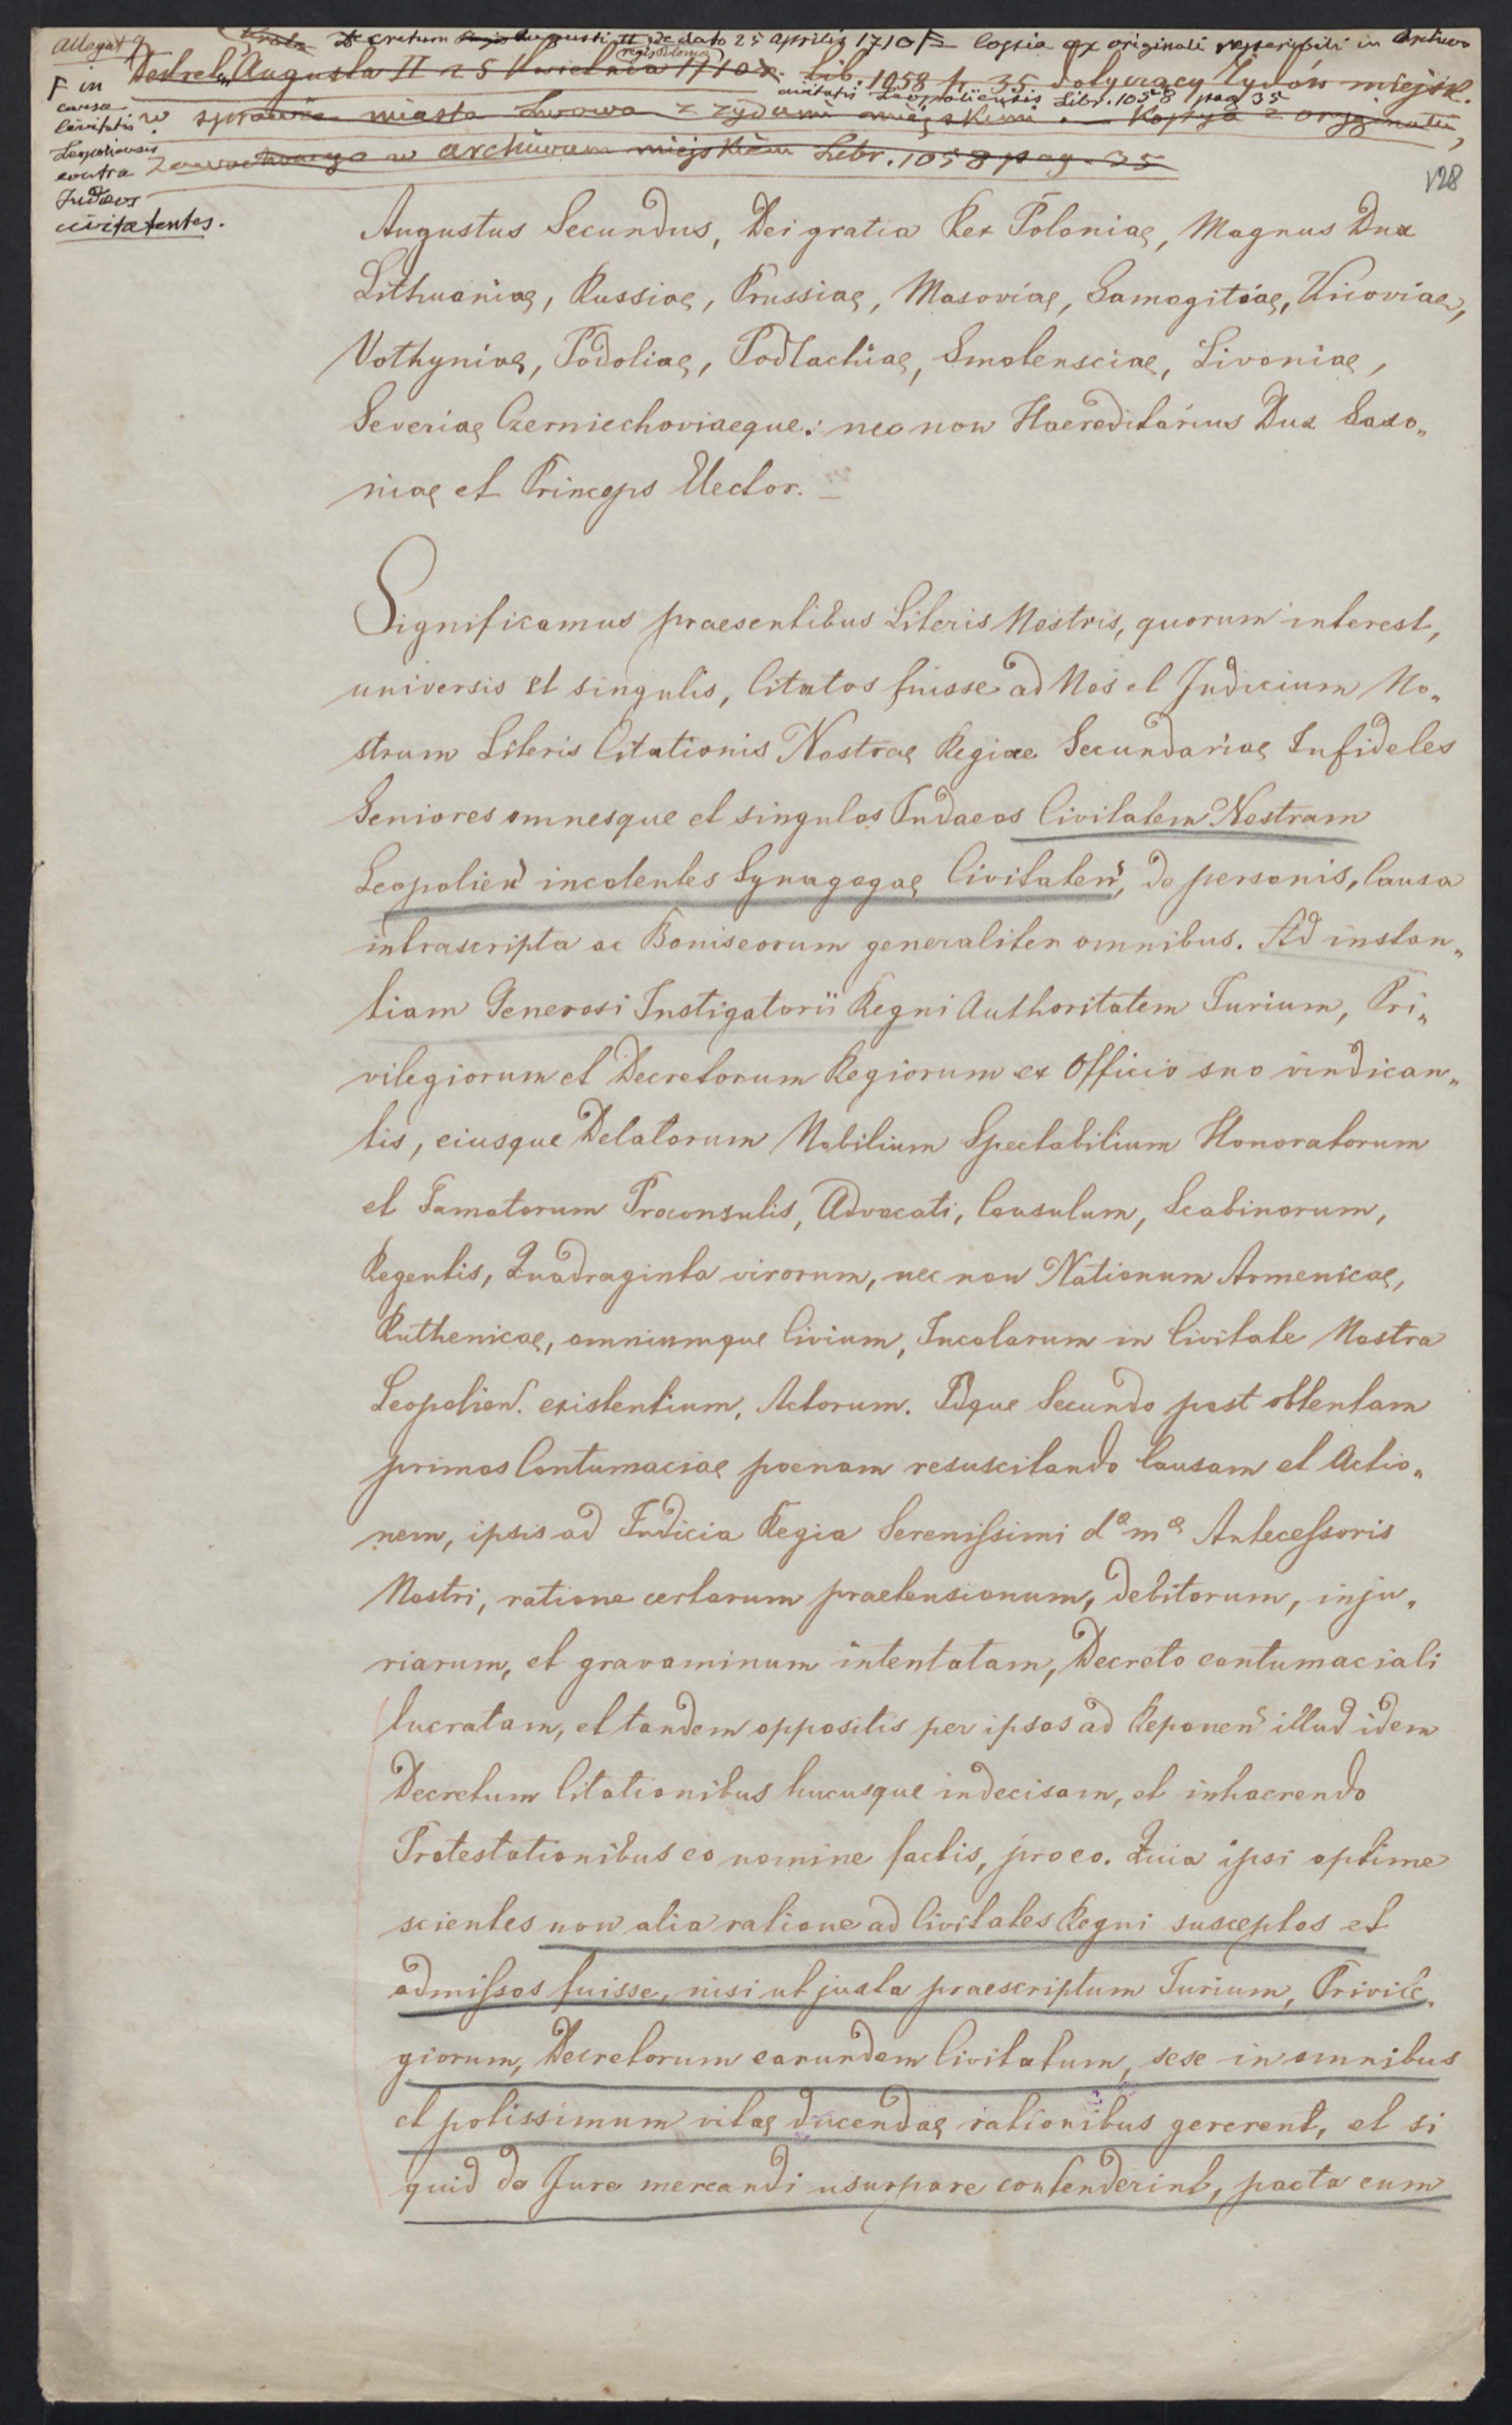 Allegat 9
Decretum Augusti II regis Poloniae de dato 25 Aprilis 1710 F= Copia ex originali in Archivo
Dekret Augusta II 25 Kwietnia 1710 r. Lib. 1058 p. 35 dotyczący Żydów miejsk.
civitatis Leopoliensis Libr. 1058 pag 35
w sprawie miasta Lwowa z żydami miejskimi. — Kopija z oryginału,
w archiwum miejskiem Libr. 1058 pag. 35
F in
causa
civitatis
Leopoliensis
contra
Judaeos
civitatenses.
128
Augustus Secundus, Dei gratia Rex Poloniae, Magnus Dux
Lithuaniae, Russiae, Prussiae, Masoviae, Samogitiae, Kijoviae,
Volhyniae, Podoliae, Podlachiae, Smolensciae, Livoniae,
Severiae Czerniechoviaeque: nec non Haereditarius Dux Saxo„
niae et Princeps Elector. —
Significamus praesentibus Literis Nostris, quorum interest,
universis et singulis, Citatos fuisse ad Nos et Judicium No„
strum Literis Citationis Nostrae Regiae Secundariae Infideles
Seniores omnesque et singulos Judaeos Civitatem Nostram
Leopolien incolentes Synagogae Civitaten, de personis, Causa
infrascripta ac Boniseorum generaliter omnibus. Ad instan„
tiam Generosi Instigatorii Regni Authoritatem Jurium, Pri„
vilegiorum et Decretorum Regiorum ex Officio suo vindican„
tis, eiusque Delatorum Nobilium Spectabilium Honoratorum
et Famatorum Proconsulis, Advocati, Consulum, Scabinorum,
Regentis, Quadraginta virorum, nec non Nationum Armenicae,
Ruthenicae, omniumque Civium, Incolarum in Civitate Nostra
Leopolien. existentium, Actorum. Idque Secundo post obtentam
primas Contumaciae poenam resuscitando Causam et Actio„
nem, ipsis ad Judicia Regia Serenissimi d<sup>e</sup> m<sup>e</sup> Antecessoris
Nostri, ratione certarum praetensionum, debitorum, inju„
riarum, et gravaminum intentatam, Decreto contumaciali
lucratam, et tandem oppositis per ipsos ad Reponen illud idem
Decretum Citationibus hucusque indecisam, et inhaerendo
Protestationibus eo nomine factis, pro eo. Quia ipsi optime
scientes non alia ratione ad Civitates Regni susceptos et
admissos fuisse, nisi ut juxta praescriptum Jurium, Privile„
giorum, Decretorum earundem Civitatum, sese in omnibus
et potissimum vitae ducendae rationibus gererent, et si
quid de Jure mercandi usurpare contenderint, pacta cum